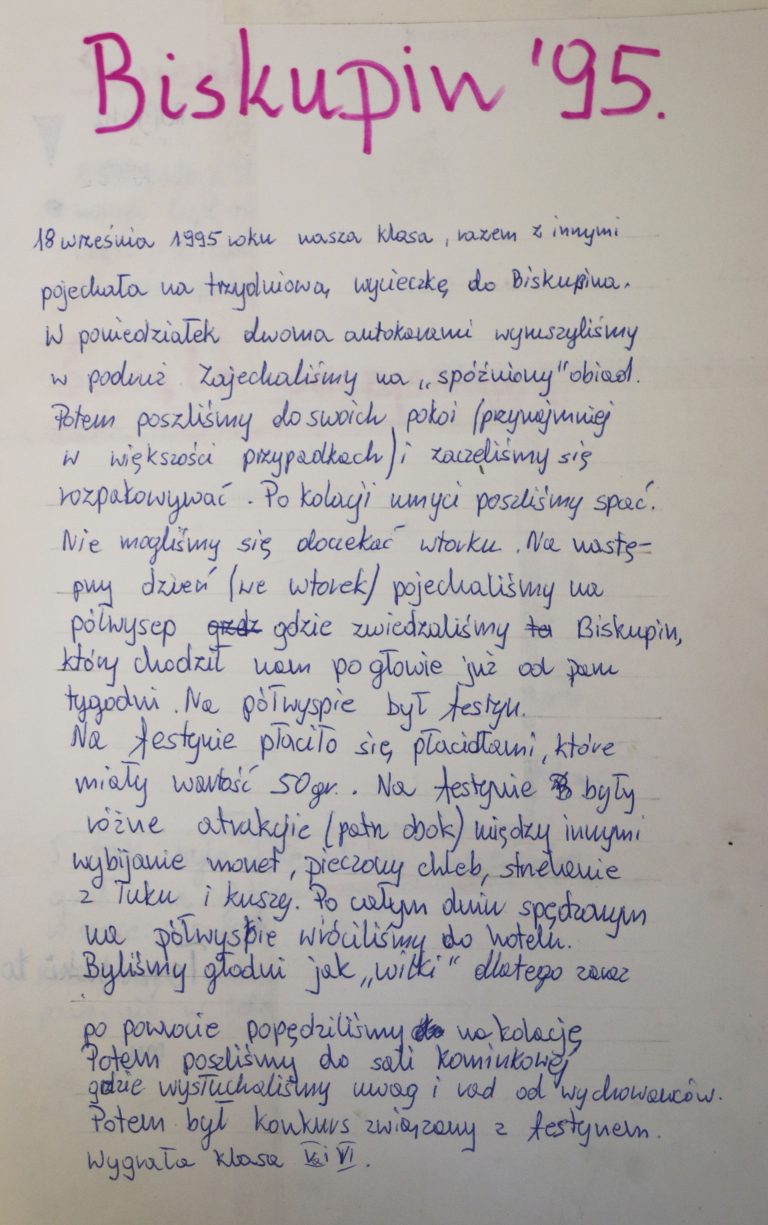 Biskupin '95.
18 września 1995 roku nasza klasa, razem z innymi
pojechała na trzydniową wycieczkę do Biskupina.
W poniedziałek dwoma autokarami wyruszyliśmy
w podruż. Zajechaliśmy na „spóźniony" obiad.
Potem poszliśmy do swoich pokoi (przynajmniej
w większości przypadkach) i zaczęliśmy się
rozpakowywać. Po kolacji umyci poszliśmy spać.
Nie mogliśmy się doczekać wtorku. Na nastę=
pny dzień (we wtorek) pojechaliśmy na
półwysep gdzie zwiedzaliśmy Biskupin,
który chodził nam po głowie już od paru
tygodni. Na półwyspie był festyn.
Na festynie płaciło się płacidłami, które
miały wartość 50gr.. Na festynie były
różne atrakcje (patrz obok) między innymi
wybijanie monet, pieczony chleb, strzelanie
z łuku i kuszy. Po całym dniu spędzonym
na półwyspie wróciliśmy do hotelu.
Byliśmy głodni jak „wilki" dlatego zaraz
po powrocie popędziliśmy na kolację
Potem poszliśmy do sali kominkowej
gdzie wysłuchaliśmy uwag i rad od wychowawców.
Potem był konkurs związany z festynem.
Wygrała klasa Va i VI.